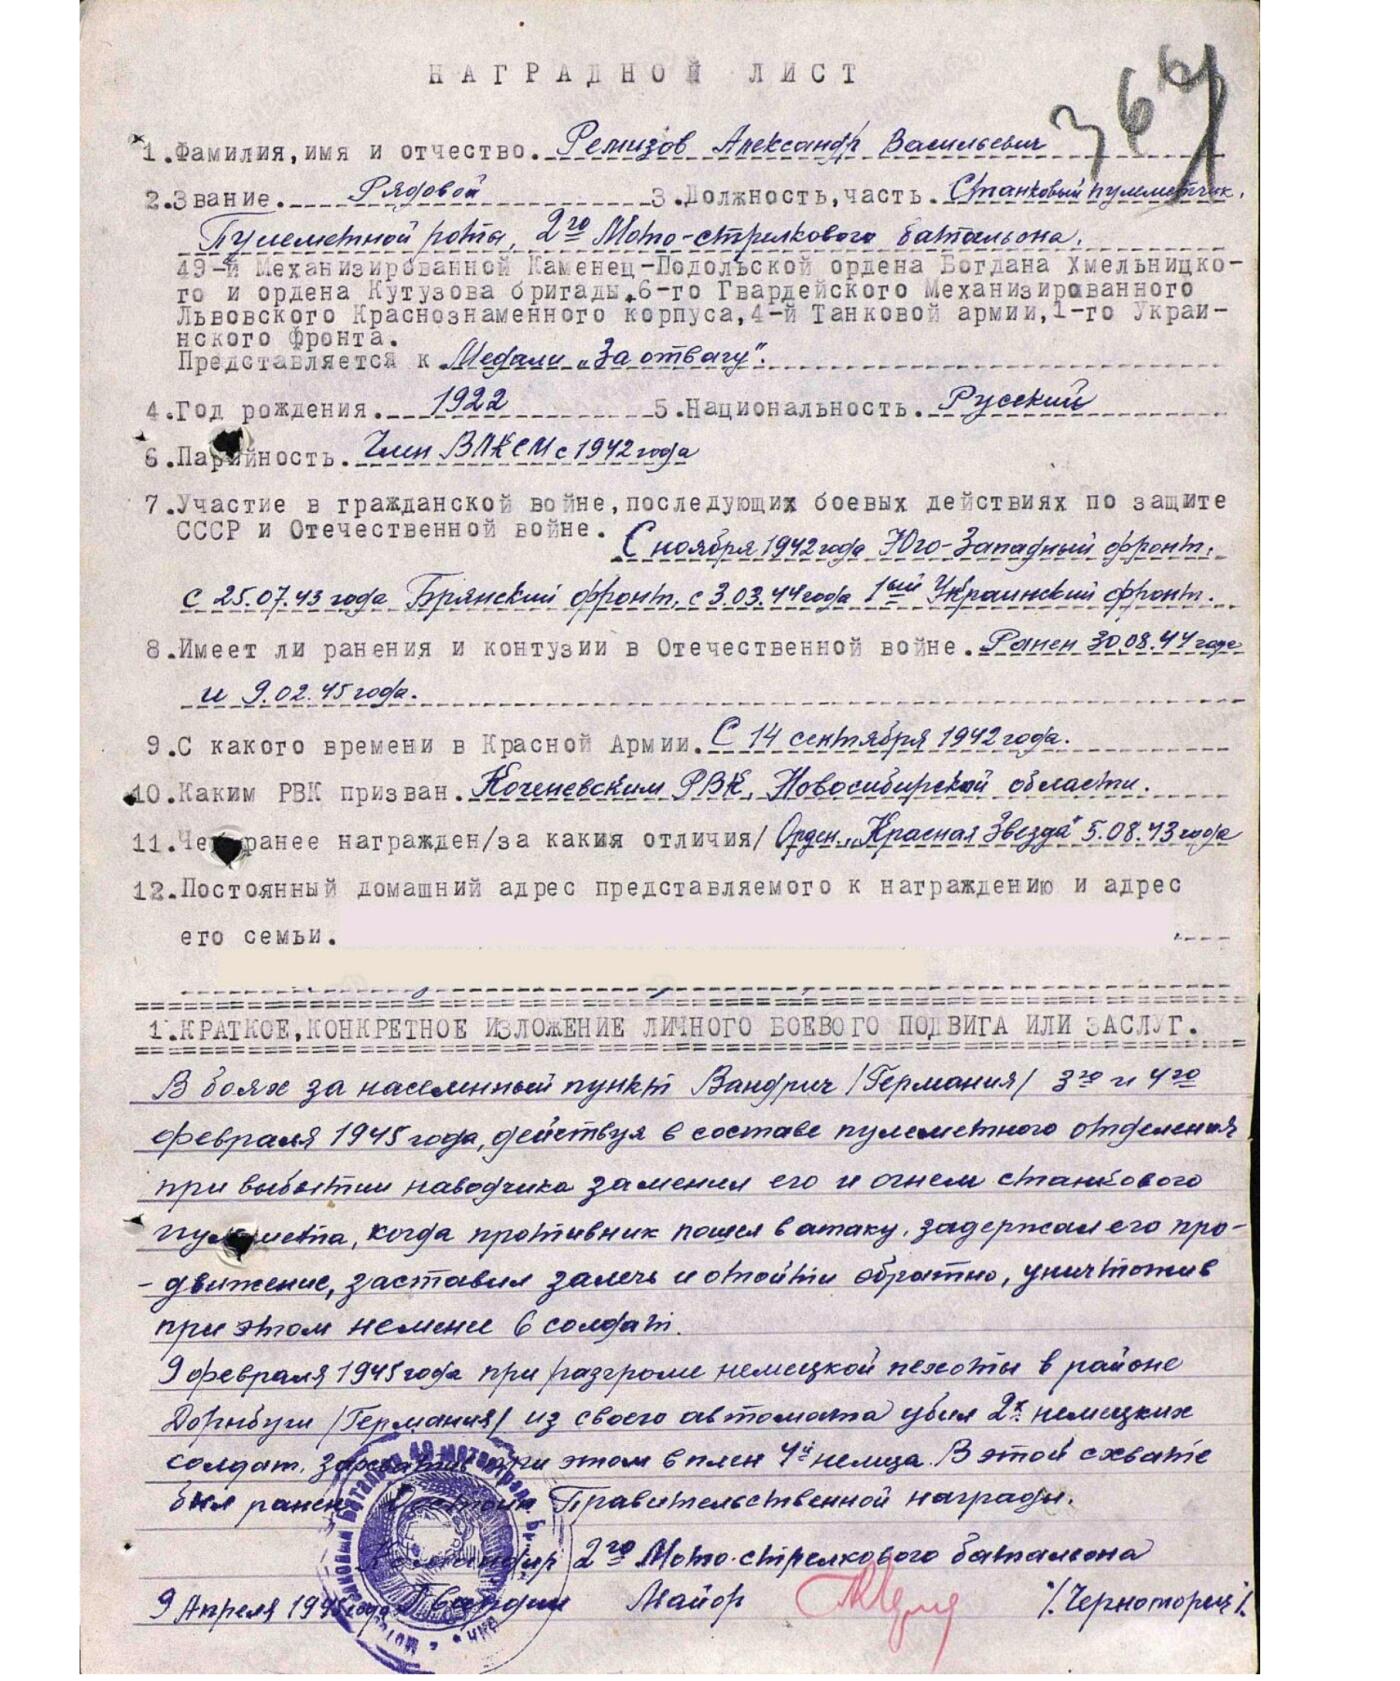 НАГРАДНОЙ ЛИСТ
1.Фамилия,имя и отчество. Ремизов Александр Васильевич
2.Звание. Рядовой 3.Должность,часть. Станковый пулеметчик,
Пулеметной роты, 2го Мото-стрелкового батальона,
49-й Механизированной Каменец-Подольской ордена Богдана Хмельницко-
го и ордена Кутузова бригады.6-го Гвардейского Механизированного
Львовского Краснознаменного корпуса,4-й Танковой армии,1-го Украи-
нского фронта.
Представляется к Медали „За отвагу".
4.Год рождения. 1922 5.Национальность. Русский
6.Парийность. Член ВЛКСМ с 1942 года
7.Участие в гражданской войне,последующих боевых действиях по защите
СССР и Отечественной войне.
С ноября 1942 года Юго-Западный фронт,
с 25.07.43 года Брянский фронт, с 3.03.44 года 1ый Украинский фронт.
8.Имеет ли ранения и контузии в Отечественной войне. Ранен 30.08.44 года
и 9.02.45 года.
9.С какого времени в Красной Армии. С 14 сентября 1942 года.
10.Каким РВК призван. Коченевским РВК, Новосибирской области.
11.Чем ранее награжден/за какия отличия/ Орден „Красная Звезда" 5.08.43 года
12.Постоянный домашний адрес представляемого к награждению и адрес
его семьи.
1.КРАТКОЕ,КОНКРЕТНОЕ ИЗЛОЖЕНИЕ ЛИЧНОГО БОЕВОГО ПОДВИГА ИЛИ ЗАСЛУГ.
В боях за населенный пункт Вандрич /Германия/ 3го и 4го
февраля 1945 года, действуя в составе пулеметного отделения
при выбытии наводчика заменил его и огнем станкового
пулемета, когда противник пошел в атаку, задержал его про-
-движение, заставил залечь и отойти обратно, уничтожив
при этом не менее 6 солдат.
9 февраля 1945 года при разгроме немецкой пехоты в районе
Дорнбуги /Германия/ из своего автомата убил 2х немецких
солдат, захватив при этом в плен 4й немца. В этой схватке
был ранен. Достоин Правительственной награды.
Командир 2го Мото-стрелкового батальона
9 Апреля 1945 года Гвардии Майор /Черноморец/.